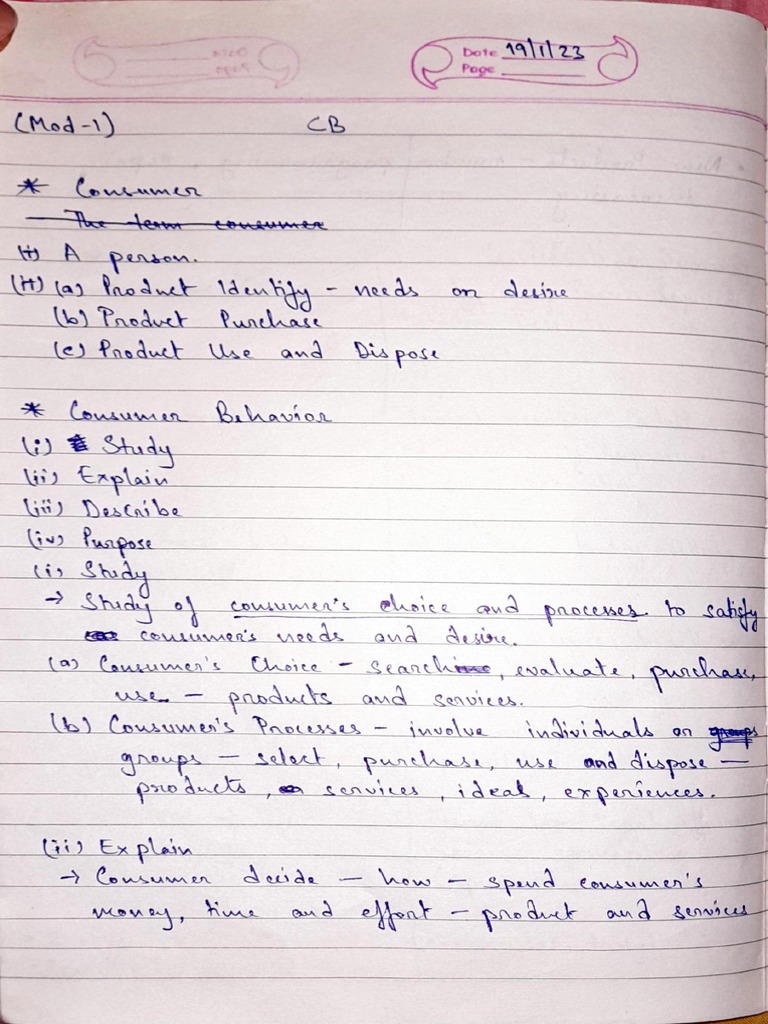 Date 19/1/23
Page
(Mod-1) CB
* Consumer
The term consumer
(i) A person.
(ii) (a) Product Identify - needs or desire
(b) Product Purchase
(c) Product Use and Dispose
* Consumer Behavior
(i) Study
(ii) Explain
(iii) Describe
(iv) Purpose
(i) Study
→ Study of consumer's choice and processes to satisfy
consumer's needs and desire.
(a) Consumer's Choice - search, evaluate, purchase,
use - products and services.
(b) Consumer's Processes - involve individuals or groups
groups - select, purchase, use and dispose -
products, services, ideas, experiences.
(ii) Explain
→ Consumer decide - how - spend consumer's
money, time and effort - product and services